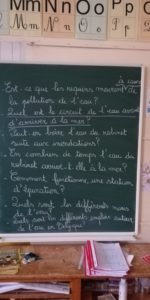 Mm Nn Oo Pp
à cause
Est-ce que les requins meurent de
la pollution de l'eau?
Quel est le circuit de l'eau avant
d'arriver à la mer?
Peut-on boire l'eau du robinet
suite aux inondations?
En combien de temps l'eau du
robinet arrive-t-elle à la mer?
Comment fonctionne une station
d'épuration?
Quels sont les différents noms
de l'eau?
sont les différents emplois autour
de l'eau en Belgique?